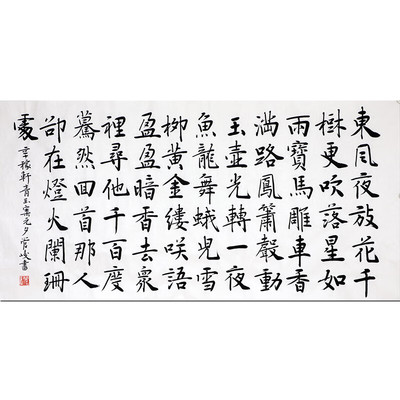 東风夜放花千
樹更吹落星如
雨寶馬雕車香
满路鳳簫聲動
玉壺光轉一夜
魚龍舞蛾兒雪
柳黄金缕咲語
盈盈暗香去衆
裡尋他千百度
驀然回首那人
卻在燈火闌珊
處
辛稼軒青玉案元夕書